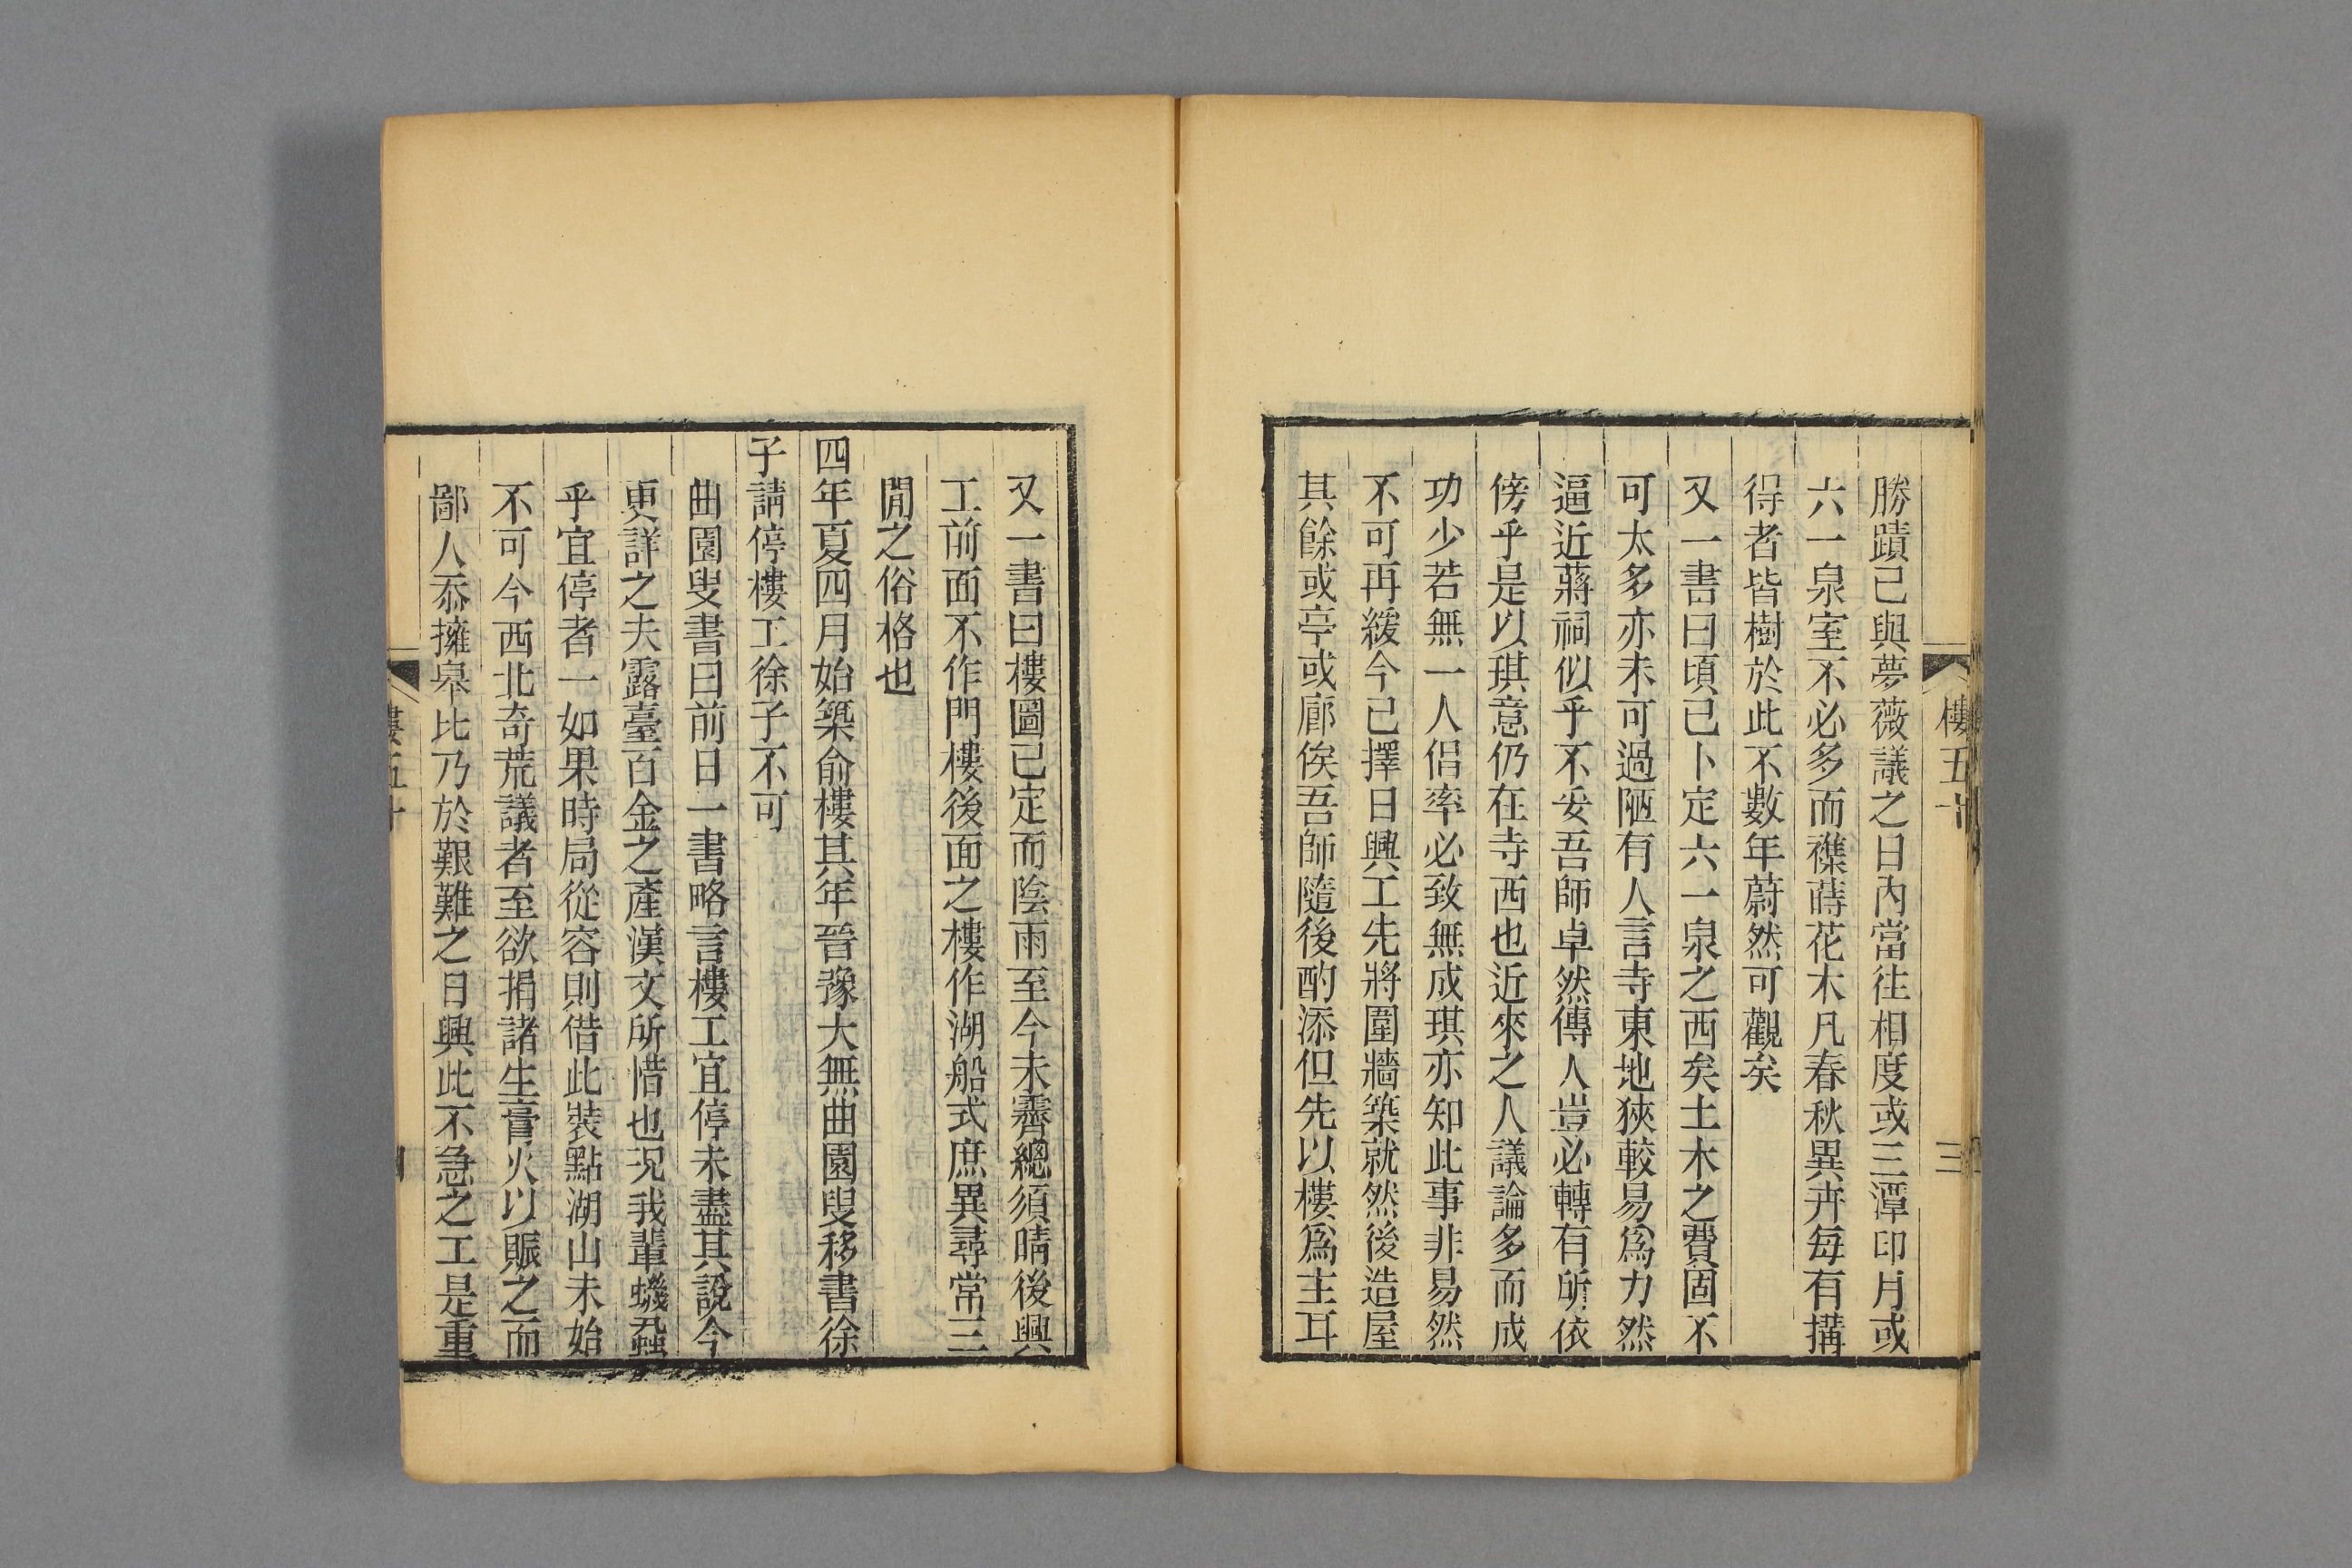 樓五
三
勝蹟已與夢薇議之日內當往相度或三潭印月或
六一泉室不必多而襍蒔花木凡春秋異卉每有搆
得者皆樹於此不數年蔚然可觀矣
又一書曰頃已卜定六一泉之西矣土木之費固不
可太多亦未可過陋有人言寺東地狹較易爲力然
逼近蔣祠似乎不妥吾師卓然傳人豈必轉有所依
傍乎是以琪意仍在寺西也近來之人議論多而成
功少若無一人侣率必致無成琪亦知此事非易然
不可再緩今已擇日興工先將圍牆築就然後造屋
其餘或亭或廊俟吾師隨後酌添但先以樓爲主耳
又一書曰樓圖已定而陰雨至今未霽總須晴後興
工前面不作門樓後面之樓作湖船式庶異尋常三
閒之俗格也
四年夏四月始築俞樓其年晉豫大無曲園叟移書徐
子請停樓工徐子不可
曲園叟書曰前日一書略言樓工宜停未盡其說今
更詳之夫露臺百金之產漢文所惜也况我輩蟣蝨
乎宜停者一如果時局從容則借此裝點湖山未始
不可今西北奇荒議者至欲捐諸生膏火以賑之而
鄙人忝擁皋比乃於艱難之日興此不急之工是重
樓五